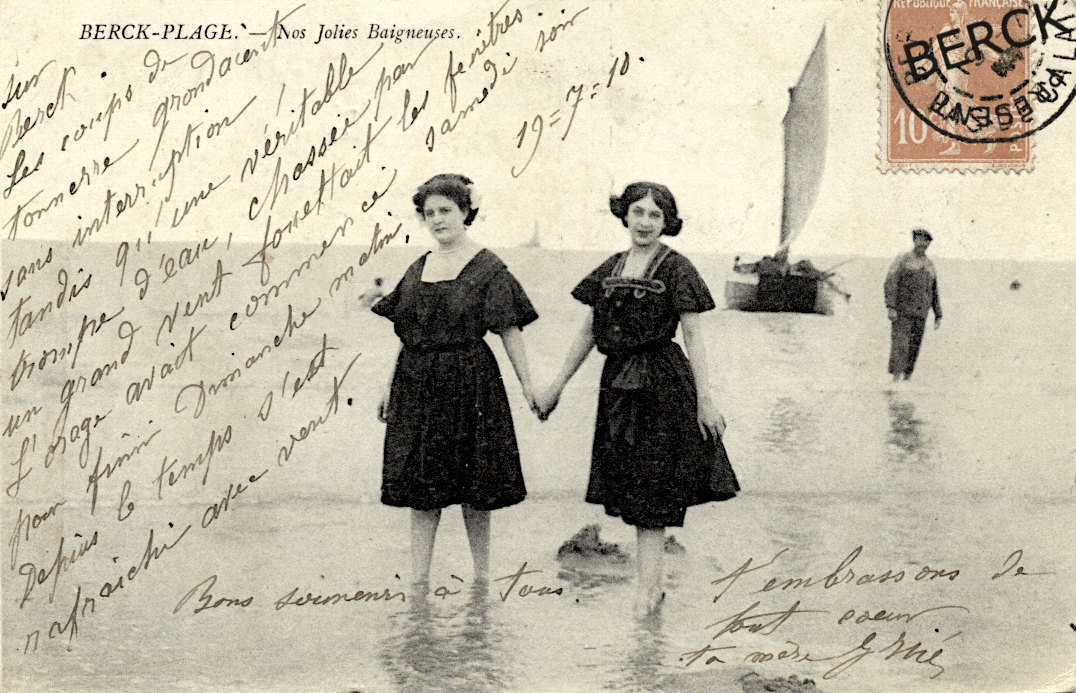 BERCK-PLAGE. — Nos Jolies Baigneuses.
RÉPUBLIQUE FRANÇAISE
10
BERCK
PAS DE CALAIS
19=7=10.
sur
Berck.
Les coups de
tonnerre grondaient
sans interruption !
tandis qu'une véritable
trompe d'eau, chassée par
un grand vent fouettait les fenêtres.
L'orage avait commencé samedi soir
pour finir Dimanche matin,
Depuis le temps s'est
rafraichi avec vent.
Bons souvenirs à Tous.
T'embrassons de
tout coeur
ta mère